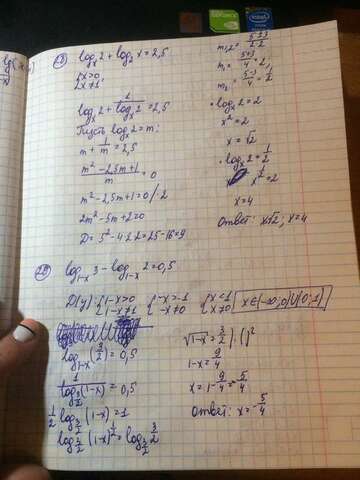 28) log_x 2 + log_2 x = 2,5
{x>0
{x≠1
log_x 2 + 1/log_x 2 = 2,5
Пусть log_x 2 = m:
m + 1/m = 2,5
(m² - 2,5m + 1)/m = 0
m² - 2,5m + 1 = 0 /·2
2m² - 5m + 2 = 0
D = 5² - 4·2·2 = 25 - 16 = 9
m₁,₂ = (5±3)/2·2
m₁ = (5+3)/4 = 2;
m₂ = (5-3)/4 = 1/2
• log_x 2 = 2
x² = 2
x = √2
• log_x 2 = 1/2
x^(1/2) = 2
x = 4
Ответ: x√2, x=4
29) log_(1-x) 3 - log_(1-x) 2 = 0,5
D(y): {1-x>0 {-x>-1 {x<1
{1-x≠1 {-x≠0 {x≠0
x∈(-∞;0)∪(0;1)
log_(1-x) (3/2) = 0,5
1/log_(3/2) (1-x) = 0,5
1/2 log_(3/2) (1-x) = 1
log_(3/2) (1-x)^(1/2) = log_(3/2) 3/2
√(1-x) = 3/2 | ( )²
1-x = 9/4
x = 1 - 9/4 = -5/4
Ответ: x = -5/4